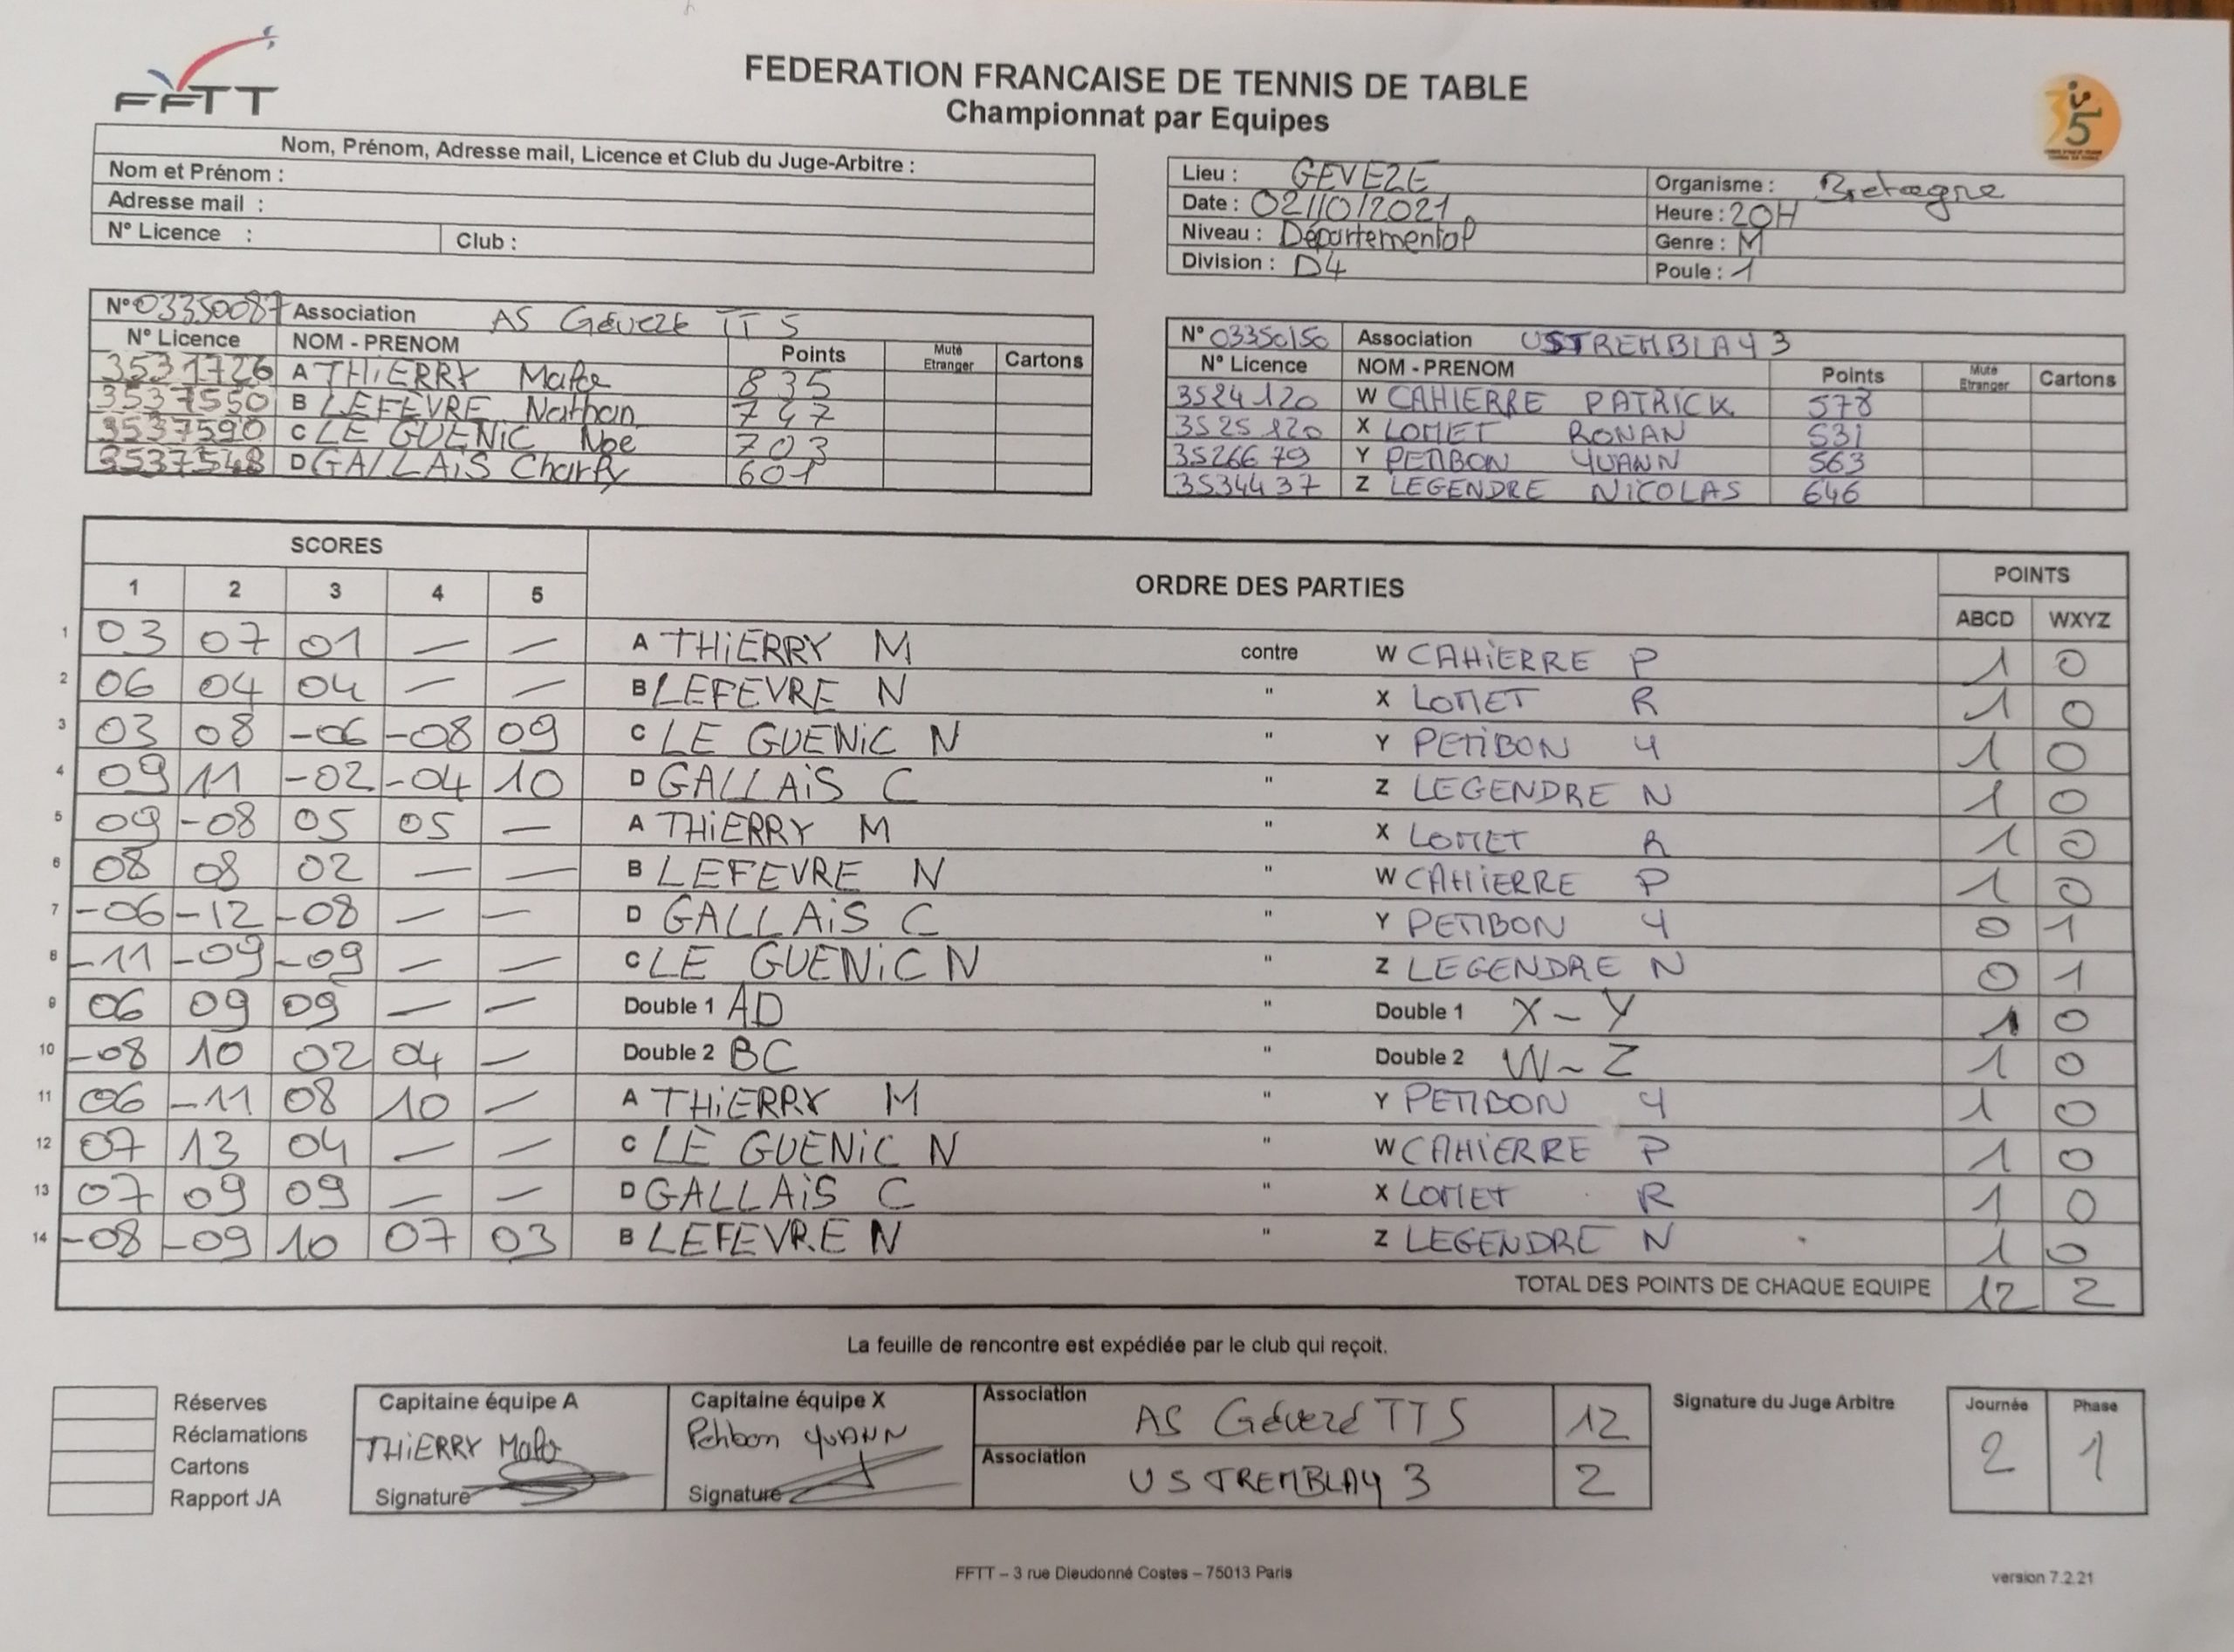 FFTT
FEDERATION FRANCAISE DE TENNIS DE TABLE
Championnat par Equipes
Nom, Prénom, Adresse mail, Licence et Club du Juge-Arbitre :
Nom et Prénom :
Adresse mail :
N° Licence : Club :
Lieu : GEVEZE Organisme : Bretagne
Date : 02/10/2021 Heure : 20H
Niveau : Départemental Genre : M
Division : D4 Poule : 1
N° 03350087 Association AS Gévezé TT 5
N° Licence NOM - PRENOM Points Muté Etranger Cartons
3531726 A THiERRY 835
3537550 B LEFEVRE Nathan 747
3537590 C LE GUENiC Noe 703
3537548 D GALLAiS Charly 601
N° 03350150 Association USTREMBLAY 3
N° Licence NOM - PRENOM Points Muté Etranger Cartons
3524120 W CAHIERRE PATRICK 578
3525120 X LOMET RONAN 531
3526679 Y PETIBON YUANN 563
3534437 Z LEGENDRE NICOLAS 646
SCORES ORDRE DES PARTIES POINTS
1 2 3 4 5 ABCD WXYZ
1 03 07 01 — — A THiERRY M contre W CAHiERRE P 1 0
2 06 04 04 — — B LEFEVRE N " X LOMET R 1 0
3 03 08 -06 -08 09 C LE GUENiC N " Y PETIBON Y 1 0
4 09 11 -02 -04 10 D GALLAiS C " Z LEGENDRE N 1 0
5 09 -08 05 05 — A THiERRY M " X LOMET R 1 0
6 08 08 02 — — B LEFEVRE N " W CAHIERRE P 1 0
7 -06 -12 -08 — — D GALLAiS C " Y PETIBON Y 0 1
8 -11 -09 -09 — — C LE GUENiC N " Z LEGENDRE N 0 1
9 06 09 09 — — Double 1 AD " Double 1 X-Y 1 0
10 -08 10 02 04 — Double 2 BC " Double 2 W-Z 1 0
11 06 -11 08 10 — A THiERRY M " Y PETIBON Y 1 0
12 07 13 04 — — C LE GUENiC N " W CAHIERRE P 1 0
13 07 09 09 — — D GALLAiS C " X LOMET R 1 0
14 -08 -09 10 07 03 B LEFEVRE N " Z LEGENDRE N 1 0
TOTAL DES POINTS DE CHAQUE EQUIPE 12 2
La feuille de rencontre est expédiée par le club qui reçoit.
Réserves
Réclamations
Cartons
Rapport JA
Capitaine équipe A
THiERRY
Signature
Capitaine équipe X
Petibon YUANN
Signature
Association AS Gévezé TT 5 12
Association US TREMBLAY 3 2
Signature du Juge Arbitre
Journée Phase
2 1
FFTT – 3 rue Dieudonné Costes – 75013 Paris
version 7.2.21